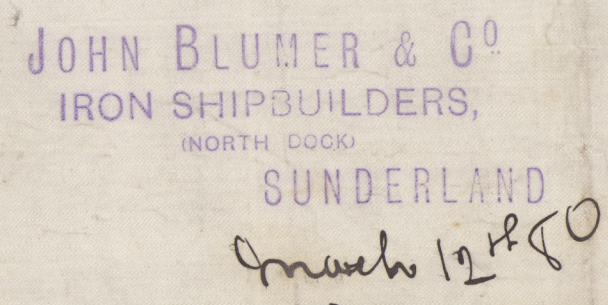 JOHN BLUMER & Co.
IRON SHIPBUILDERS,
(NORTH DOCK)
SUNDERLAND
March 12th 80